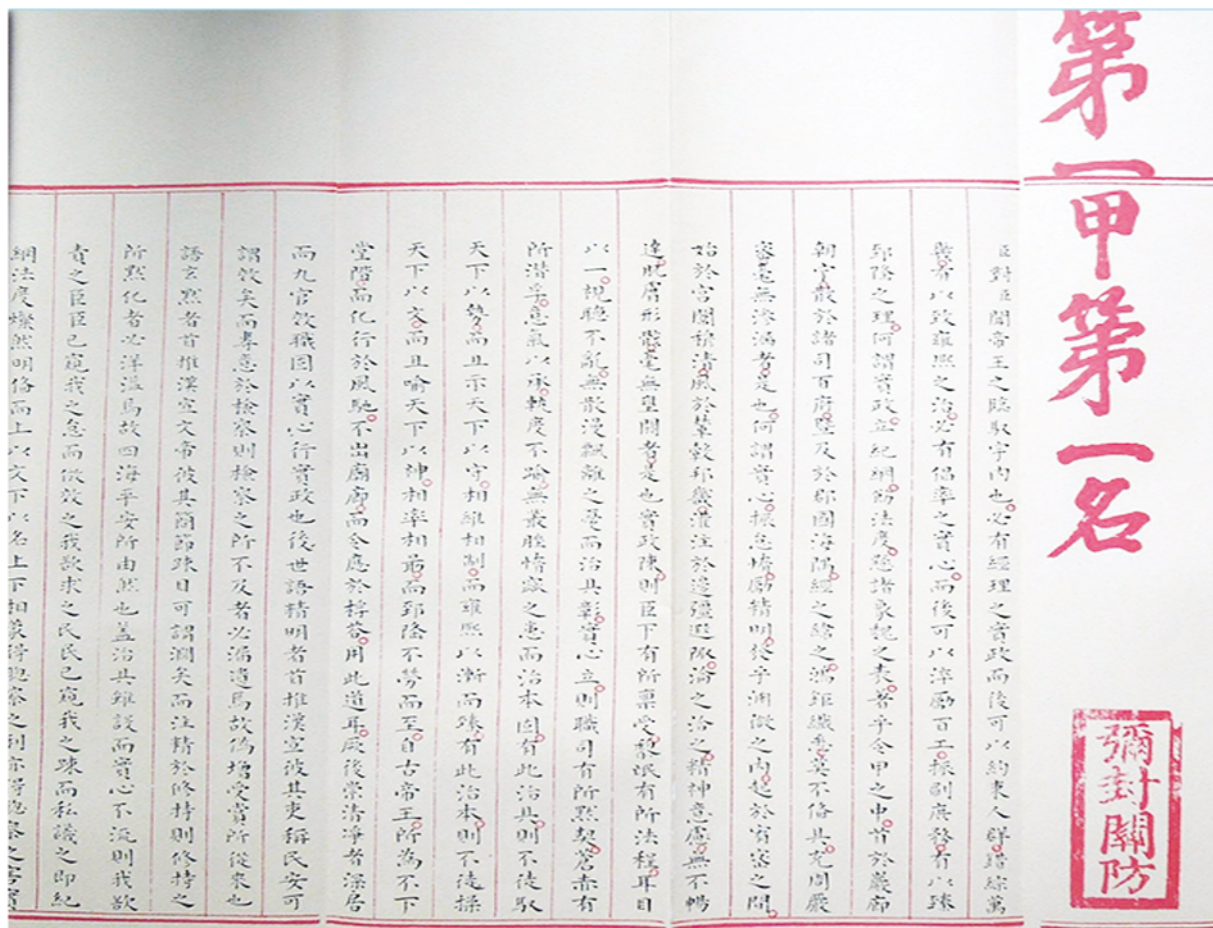 第一甲第一名
彌封關防
臣對臣聞帝王之臨馭宇內也必有經理之實政而後可以約束人群錯綜萬
機有以致雍熙之治必有倡率之實心而後可以淬勵百工振刷庶務有以臻
郅隆之理何謂實政立紀綱飭法度懸諸象魏之表著乎令甲之中首於嚴廊
朝宁散於諸司百府暨及於郡國海隅經之緯之鴻鉅纖悉莫不備具充周嚴
密毫無滲漏者是也何謂實心振怠惰勵精明發乎淵微之內起於宥密之間
始於宮闈穆清風於輦轂邦畿灌注於邊疆遐陬淪之洽之精神意慮無不暢
達肌膚形骸毫無壅閼者是也實政陳則臣下有所稟受黎氓有所法程耳目
以一視聽不亂無散漫飄離之憂而治具彰實心立則職司有所默契蒼赤有
所潛孚意氣以承軌度不踰無叢脞惰窳之患而治本固有此治具則不徒馭
天下以勢而且示天下以守相維相制而雍熙以漸而臻有此治本則不徒操
天下以文而且喻天下以神相率相勗而郅隆不勞而至自古帝王所為不下
堂階而化行於風馳不出廟廊而令應於桴答用此道耳厥後崇清凈者深居
而九官效職固以實心行實政也後世語精明者首推漢宣彼其吏稱民安可
謂效矣而專意於檢察則檢察之所不及者必漏遺焉故偽增受賞所從來也
語玄默者首推漢宣文帝彼其簡節疎目可謂濶矣而注精於修持則修持之
所默化者必洋溢焉故四海平安所由然也蓋治具雖設而實心不流則我欲
責之臣臣已窺我之怠而倣效之我欲求之民民已窺我之疎而私議之即紀
綱法度燦然明俻而上以文下以名上下相蒙得聰察之利亦得聰察之害實